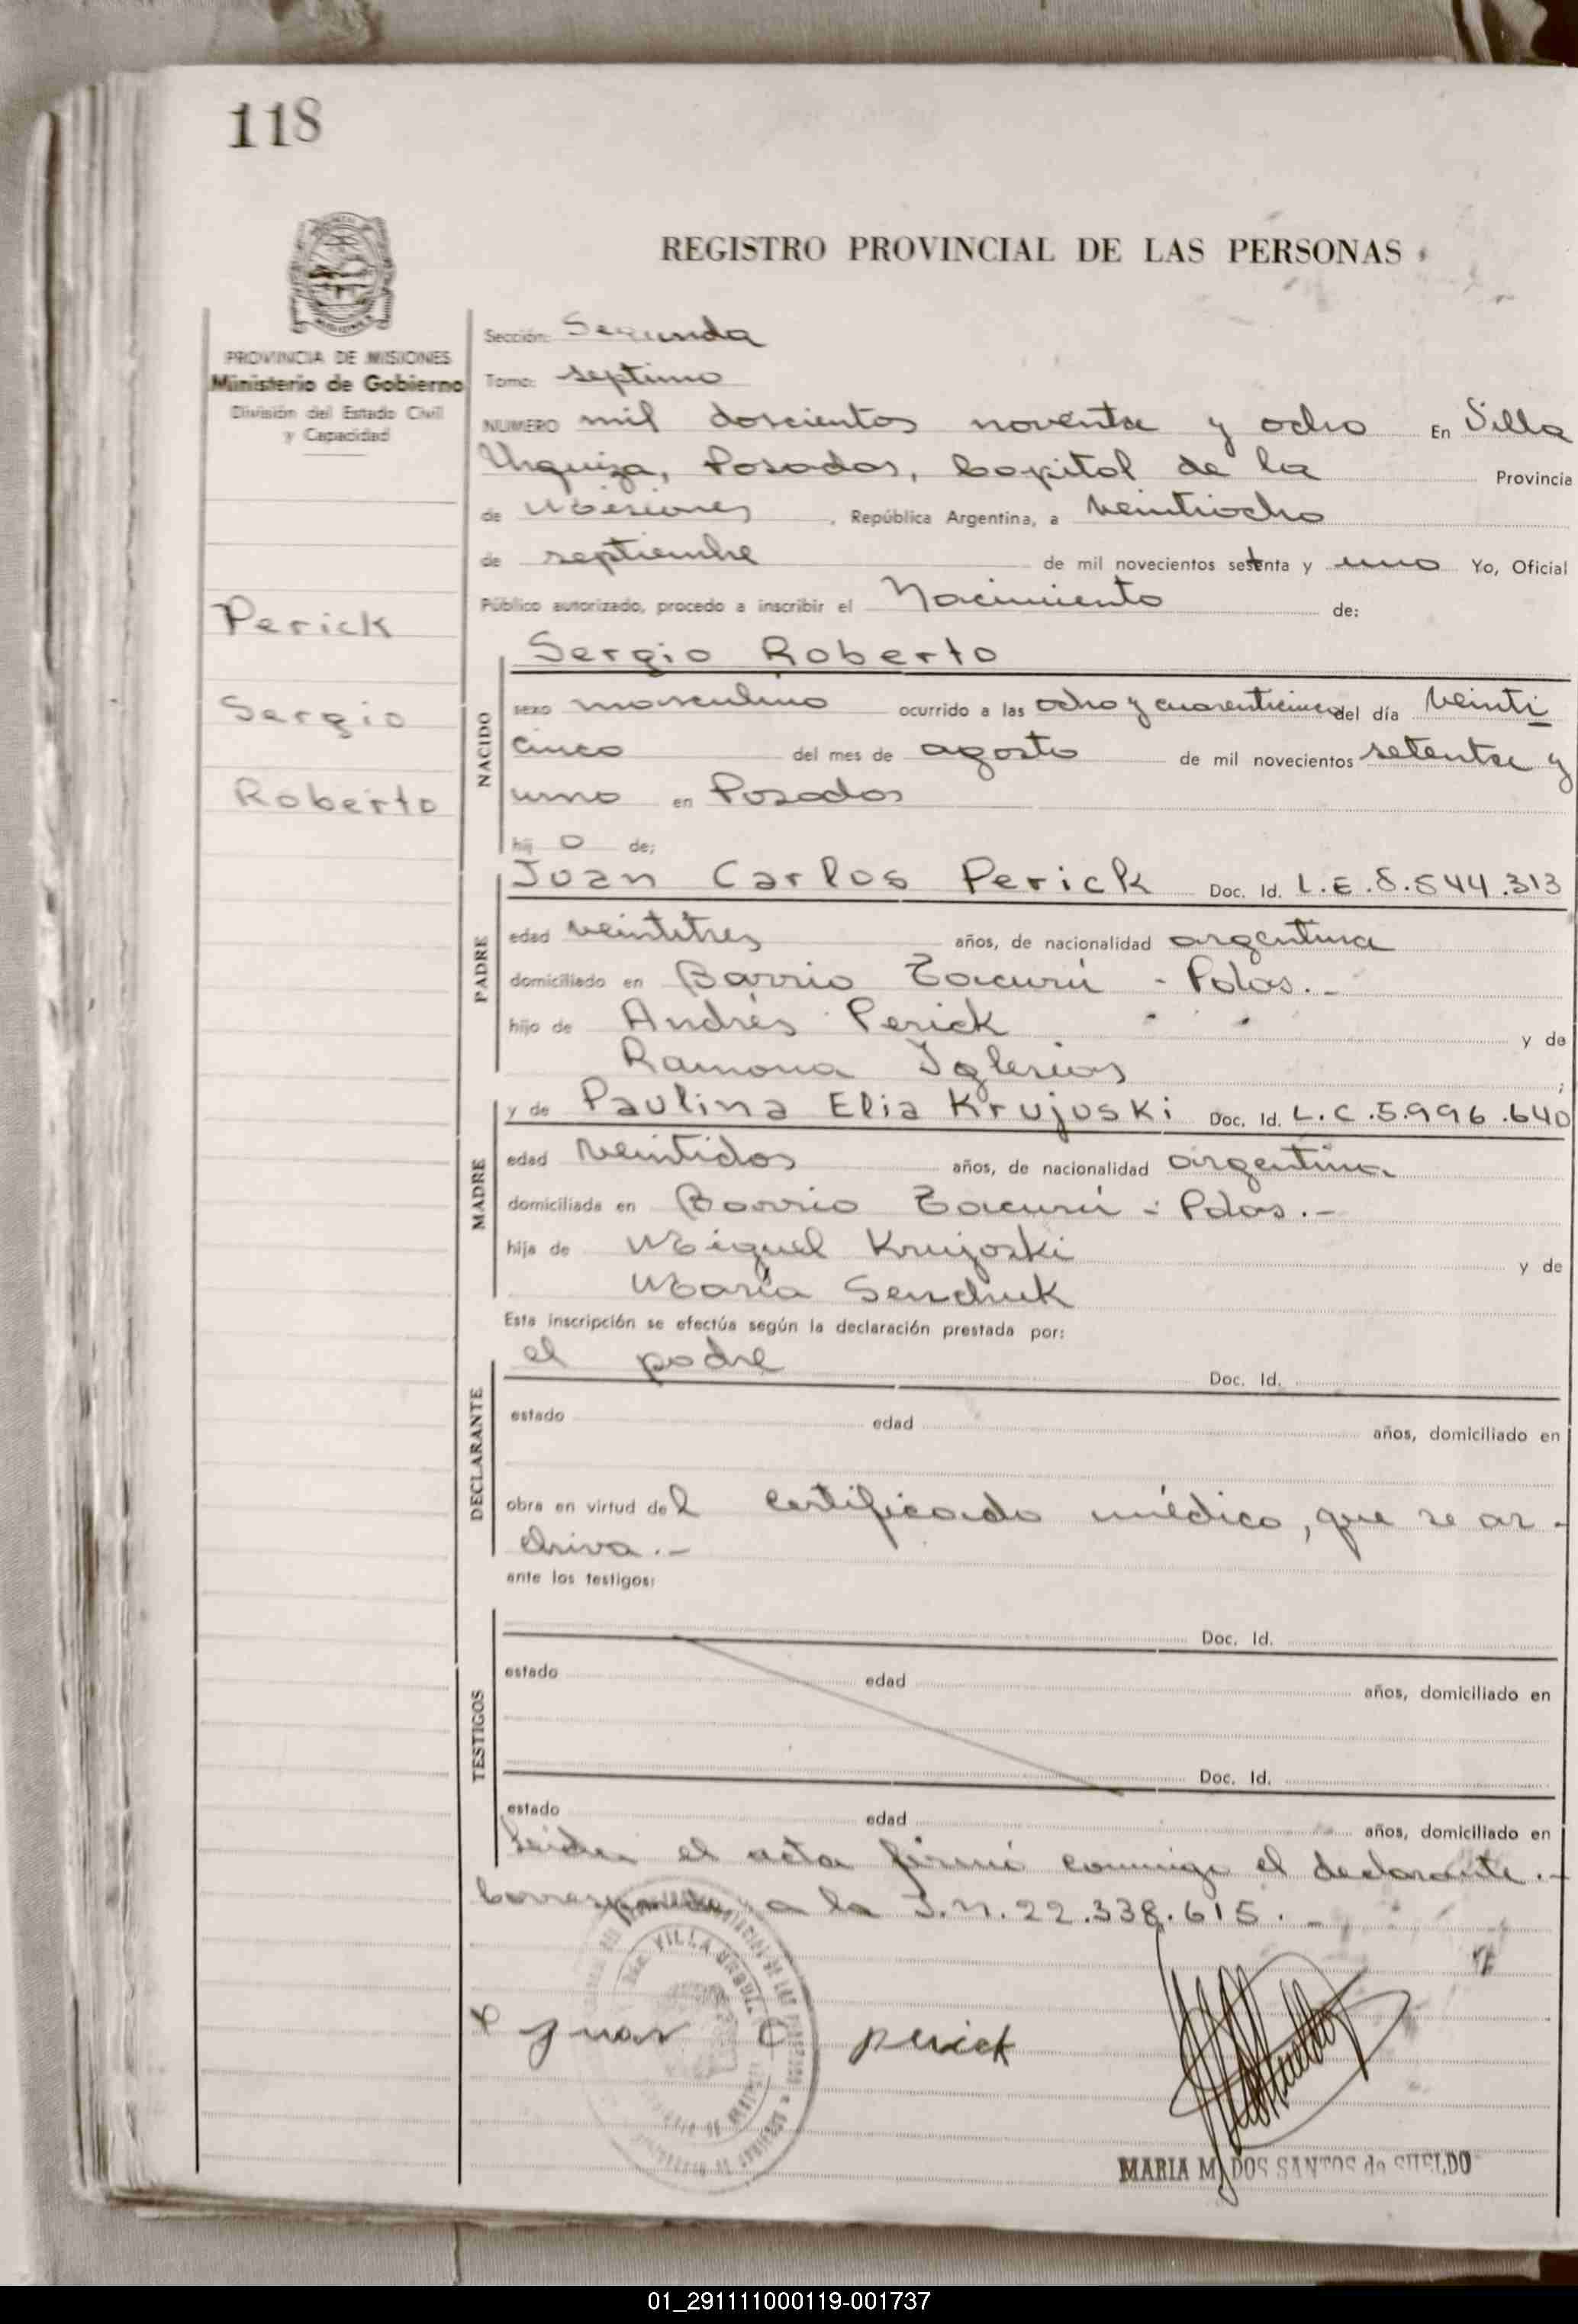 118
REGISTRO PROVINCIAL DE LAS PERSONAS
PROVINCIA DE MISIONES
Ministerio de Gobierno
División del Estado Civil
y Capacidad
Perick
Sergio
Roberto
Sección: Segunda
Tomo: septimo
NUMERO mil doscientos noventa y ocho En Villa
Urquiza, Posadas, Capital de la Provincia
de Misiones, República Argentina, a veintiocho
de septiembre de mil novecientos setenta y uno Yo, Oficial
Público autorizado, procedo a inscribir el Nacimiento de:
Sergio Roberto
NACIDO
sexo masculino ocurrido a las ocho y cuarenticinco del día veinti
cinco del mes de agosto de mil novecientos setenta y
uno en Posadas
hij o de;
Juan Carlos Perick Doc. Id. L.E.8.544.313
PADRE
edad veintitres años, de nacionalidad argentina
domiciliado en Barrio Tacurú - Pdas.-
hijo de Andrés Perick y de
Ramona Iglesias ;
y de Paulina Elia Krujoski Doc. Id. L.C.5.996.640
MADRE
edad veintidos años, de nacionalidad argentina
domiciliada en Barrio Tacurú - Pdas.-
hija de Miguel Krujoski y de
María Senchuk
Esta inscripción se efectúa según la declaración prestada por:
el padre Doc. Id.
DECLARANTE
estado edad años, domiciliado en
obra en virtud del certificado médico, que se ar-
chiva.-
ante los testigos:
TESTIGOS
Doc. Id.
estado edad años, domiciliado en
Doc. Id.
estado edad años, domiciliado en
Leida el acta firmó conmigo el declarante.-
Corresponde a la I.N.22.338.615.-
VILLA URQUIZA
Juan C Perick
MARIA M. DOS SANTOS de SUELDO
01_291111000119-001737